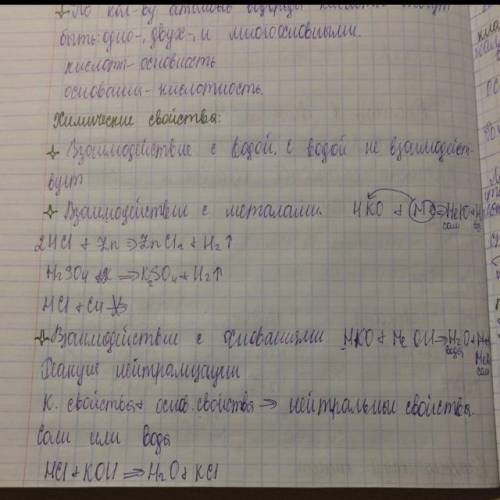 По кол-ву атомов водорода кислоты могут
быть: одно-, двух- и многоосновными.
кислоты - основность
основания - кислотность.
Химические свойства:
Взаимодействие с водой. с водой не взаимодейст-
вует
Взаимодействие с металами. HKO + Me ⇒ MeKO + H₂
соль
2HCl + Zn ⇒ ZnCl₂ + H₂↑
H₂SO₄ + K ⇒ K₂SO₄ + H₂↑
HCl + Cu
Взаимодействие с основаниями HKO + MeOH ⇒ H₂O +
вода
соль
Реакция нейтрализации
К. свойства + основ. свойства ⇒ нейтральные свойства
Соли или воды
HCl + KOH ⇒ H₂O + KCl